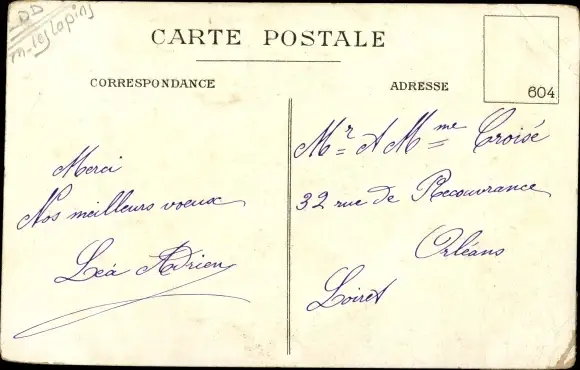 DD
m-leslapins
CARTE POSTALE
CORRESPONDANCE
ADRESSE
604
Merci
Nos meilleurs voeux
Léa Adrien
Mr & Mme Croisé
32 rue de Recouvrance
Orléans
Loiret